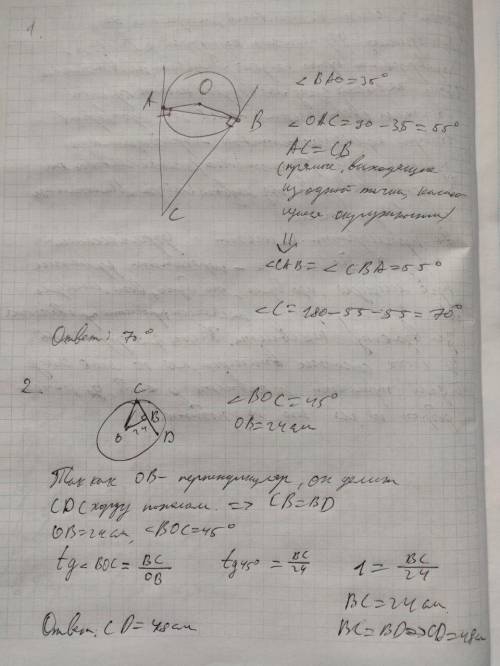 1
O
A
B
C
∠BAO=35°
∠OAC=90-35=55°
AC=CB
(прямые, выходящие
из одной точки, касаю
щиеся окружности)
⇓
∠CAB=∠CBA=55°
∠C=180-55-55=70°
Ответ: 70°
2.
C
B
O 24
D
∠BOC=45°
OB=24см
Так как OB- перпендикуляр, он делит
CD(хорду попалам. => CB=BD
OB=24см, ∠BOC=45°
tg∠BOC=BC/OB tg45°=BC/24 1=BC/24
BC=24см.
Ответ. CD=48см BC=BD=>CD=48см